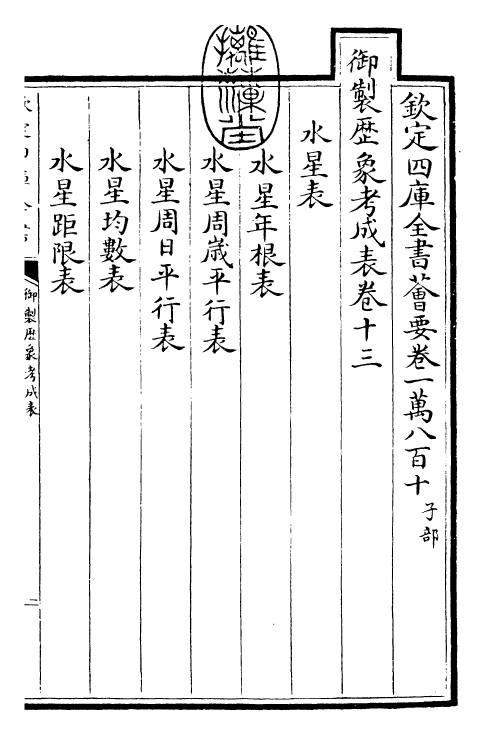 欽定四庫全書薈要卷一萬八百十 子部
御製歴象考成表卷十三
水星表
水星年根表
水星周歳平行表
水星周日平行表
水星均數表
水星距限表
御製歴象考成表